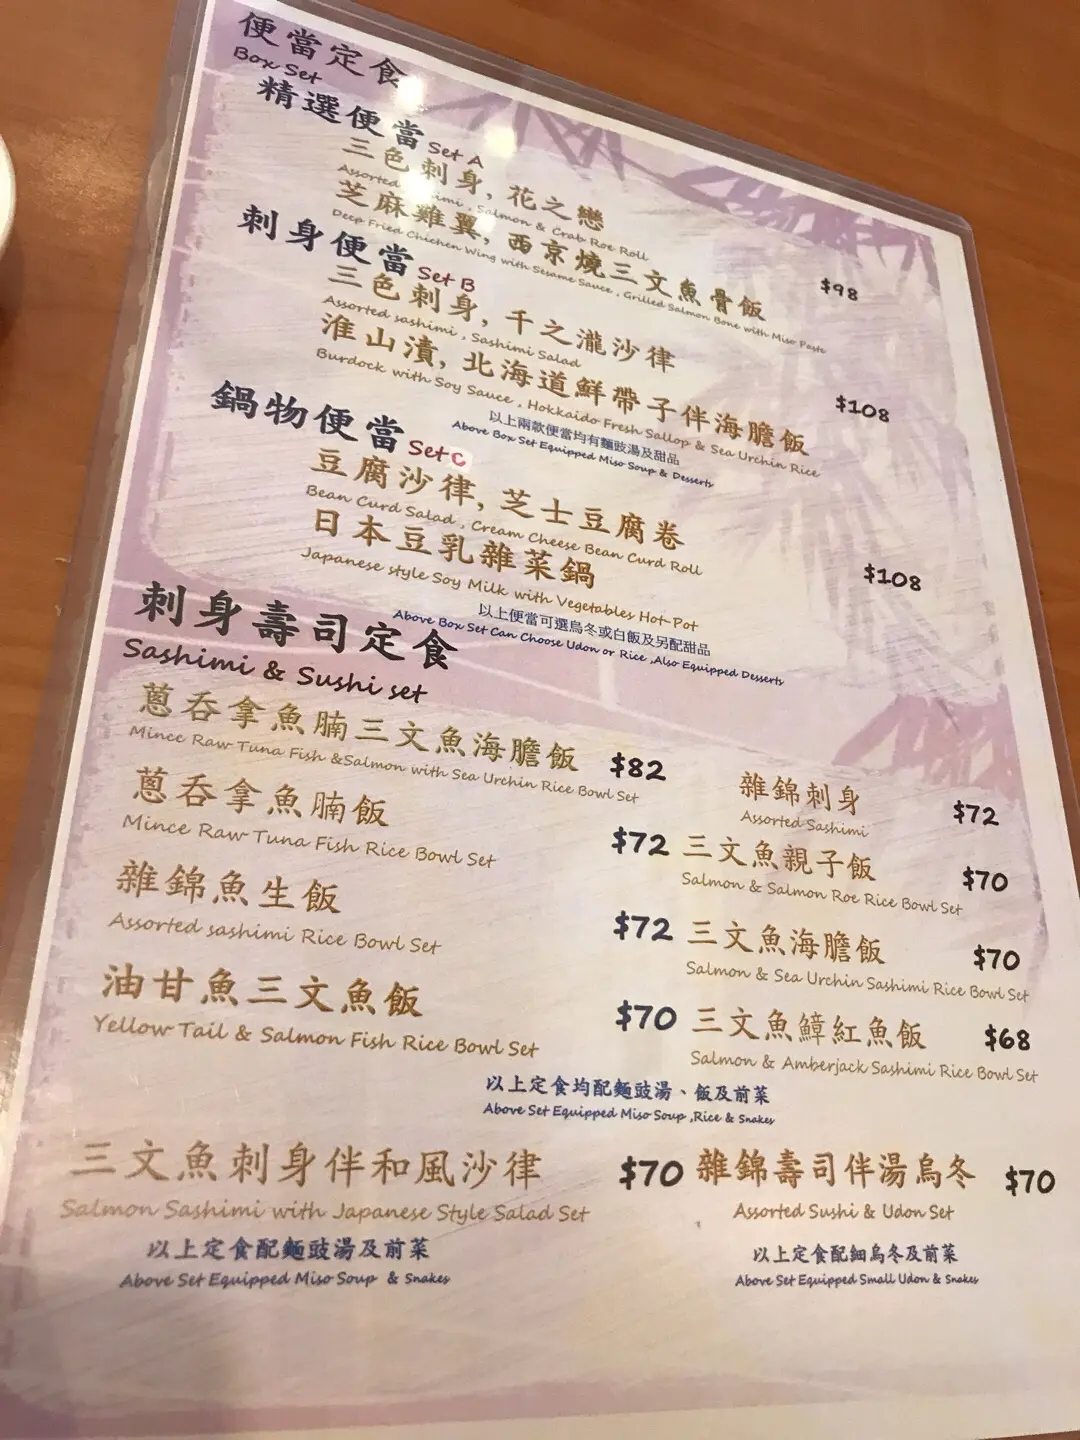 便當定食
Box Set
精選便當 Set A
三色刺身, 花之戀
Assorted Sashimi, Salmon & Crab Roe Roll
芝麻雞翼, 西京燒三文魚骨飯 $98
Deep Fried Chichen Wing with Sesame Sauce, Grilled Salmon Bone with Miso Paste
刺身便當 Set B
三色刺身, 千之瀧沙律
Assorted sashimi, Sashimi Salad
淮山漬, 北海道鮮帶子伴海膽飯 $108
Burdock with Soy Sauce, Hokkaido Fresh Sallop & Sea Urchin Rice
以上兩款便當均有麵豉湯及甜品
Above Box Set Equipped Miso Soup & Desserts
鍋物便當 Set C
豆腐沙律, 芝士豆腐卷
Bean Curd Salad, Cream Cheese Bean Curd Roll
日本豆乳雜菜鍋 $108
Japanese style Soy Milk with Vegetables Hot Pot
以上便當可選烏冬或白飯及另配甜品
Above Box Set Can Choose Udon or Rice ,Also Equipped Desserts
刺身壽司定食
Sashimi & Sushi set
蔥吞拿魚腩三文魚海膽飯 $82
Mince Raw Tuna Fish &Salmon with Sea Urchin Rice Bowl Set
蔥吞拿魚腩飯 $72
Mince Raw Tuna Fish Rice Bowl Set
雜錦魚生飯 $72
Assorted sashimi Rice Bowl Set
油甘魚三文魚飯 $70
Yellow Tail & Salmon Fish Rice Bowl Set
雜錦刺身 $72
Assorted Sashimi
三文魚親子飯 $70
Salmon & Salmon Roe Rice Bowl Set
三文魚海膽飯 $70
Salmon & Sea Urchin Sashimi Rice Bowl Set
三文魚鱆紅魚飯 $68
Salmon & Amberjack Sashimi Rice Bowl Set
以上定食均配麵豉湯、飯及前菜
Above Set Equipped Miso Soup ,Rice & Snakes
三文魚刺身伴和風沙律 $70
Salmon Sashimi with Japanese Style Salad Set
以上定食配麵豉湯及前菜
Above Set Equipped Miso Soup & Snakes
雜錦壽司伴湯烏冬 $70
Assorted Sushi & Udon Set
以上定食配細烏冬及前菜
Above Set Equipped Small Udon & Snakes